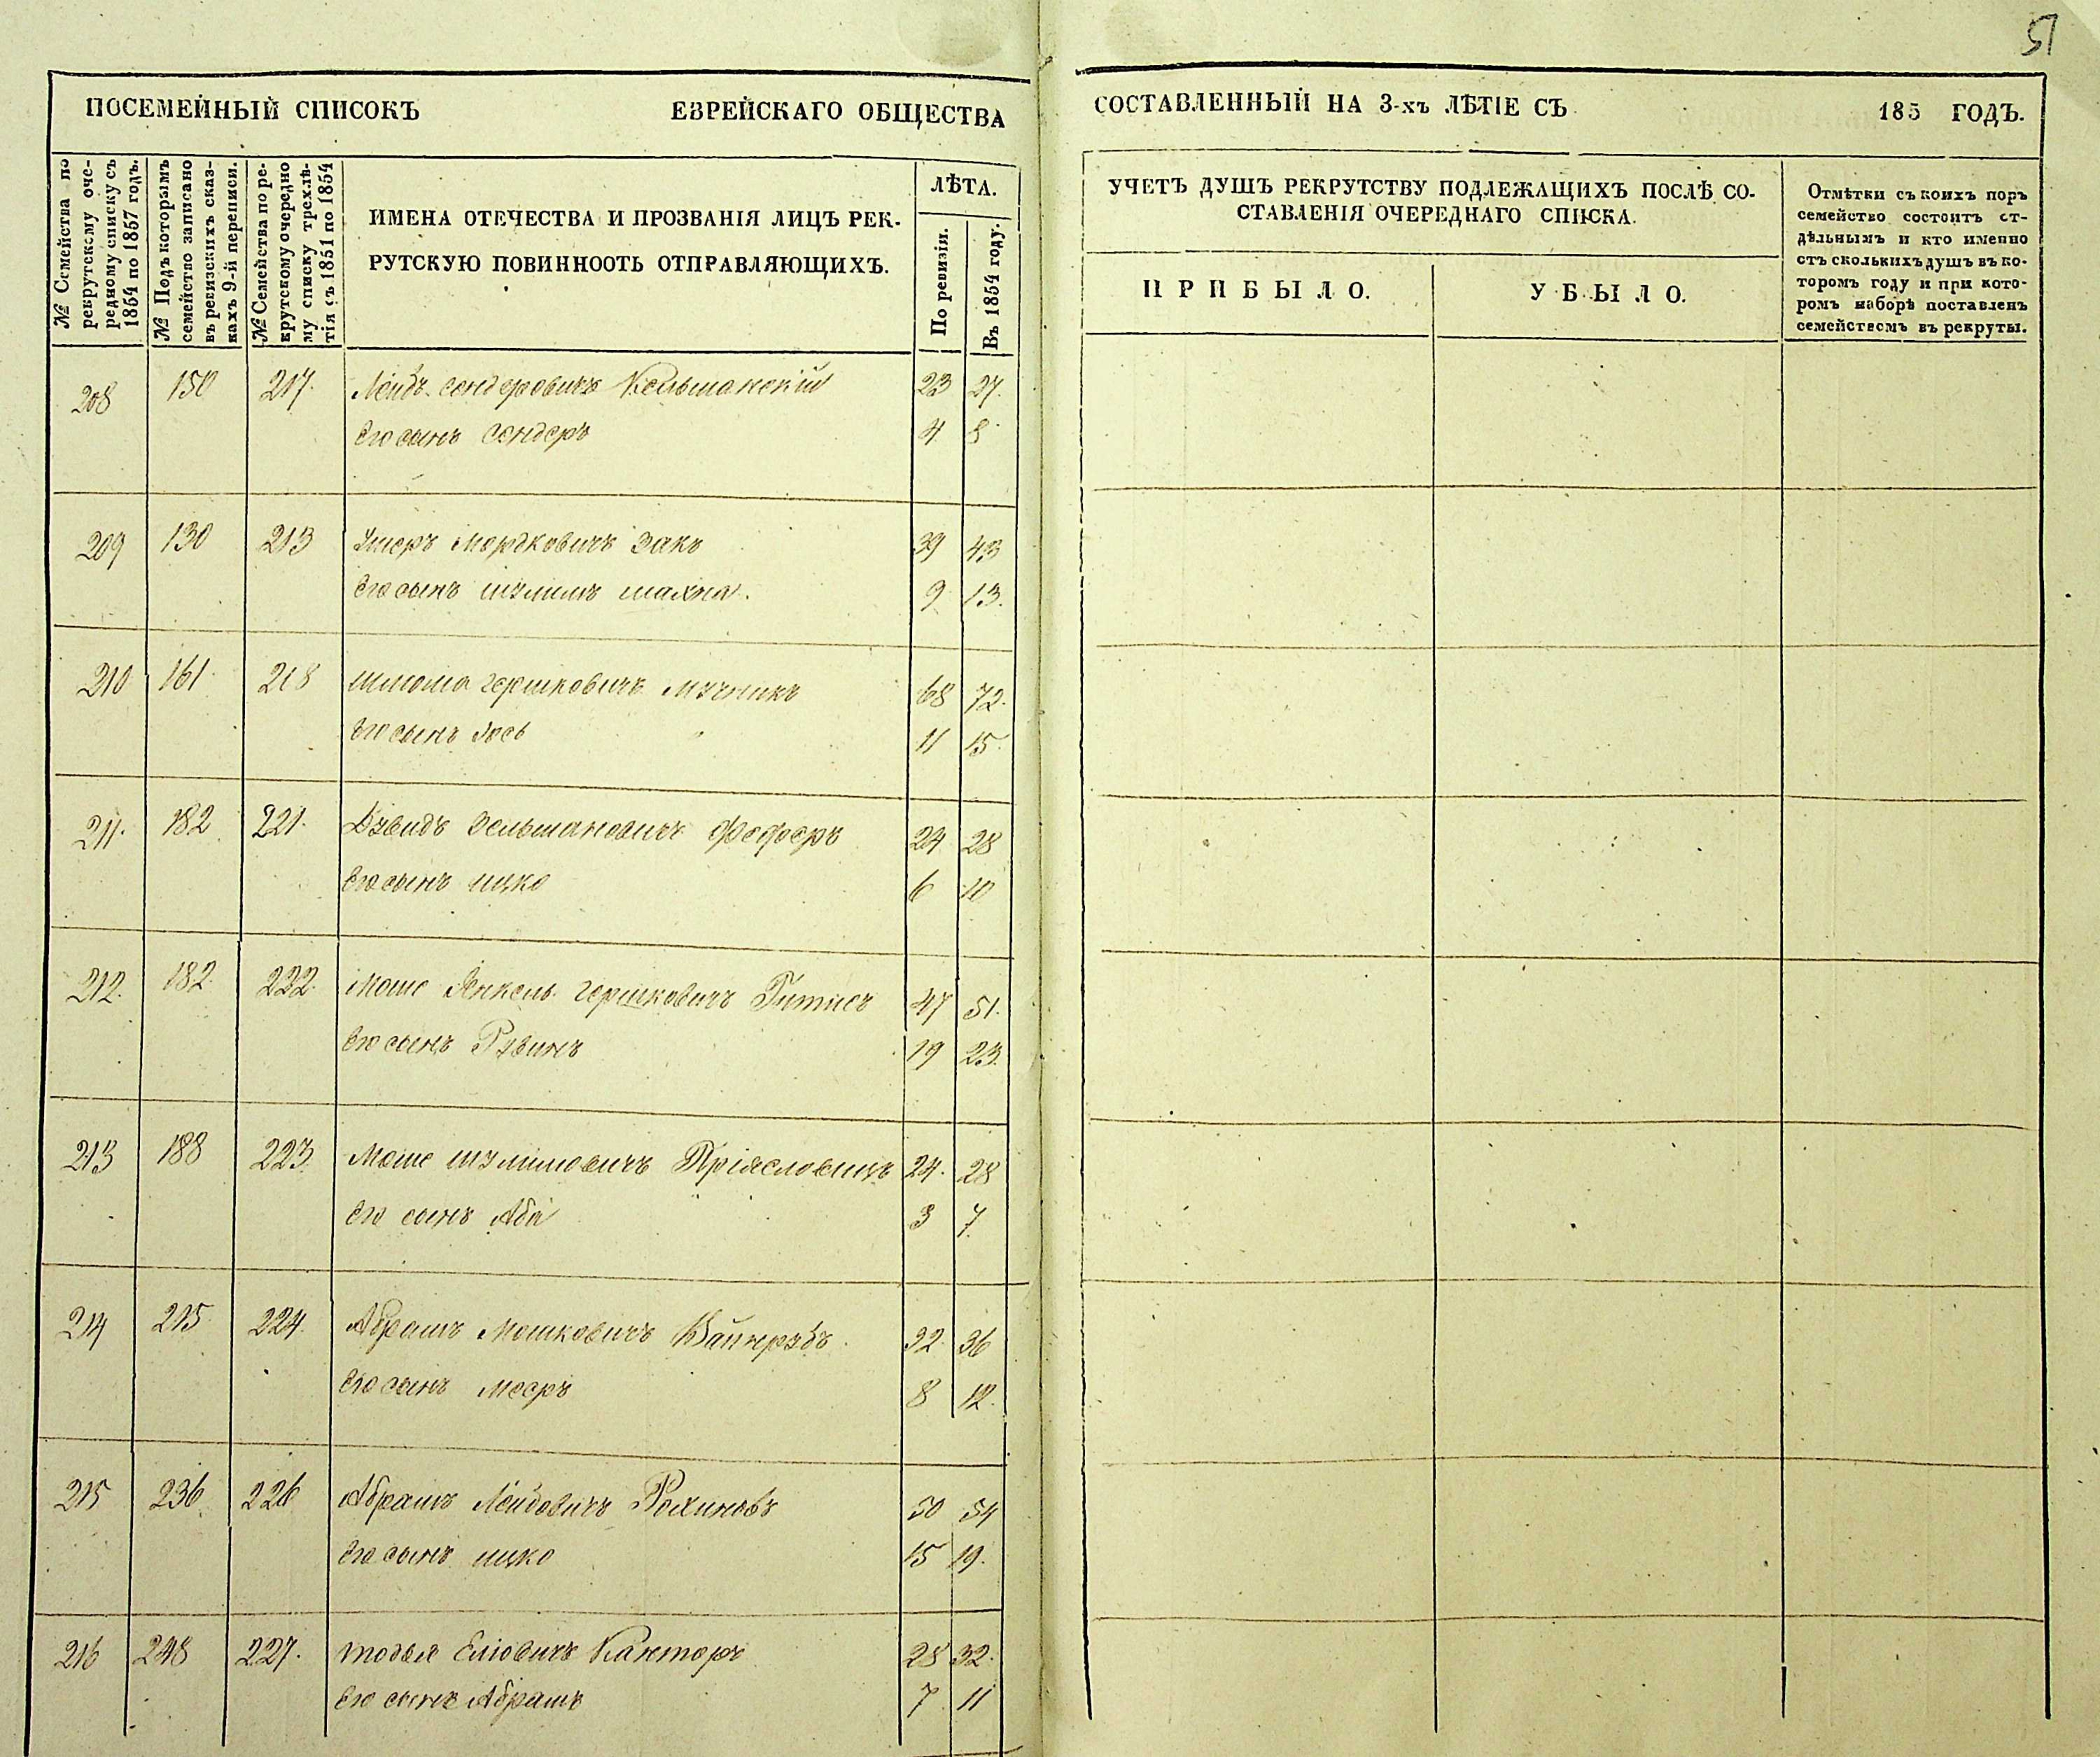 51
ПОСЕМЕЙНЫЙ СПИСОКЪ ЕВРЕЙСКАГО ОБЩЕСТВА СОСТАВЛЕННЫЙ НА 3-хъ ЛѢТІЕ СЪ 185 ГОДЪ.
№ Семейства по
рекрутскому оче-
редному списку съ
1854 по 1857 годъ.
№ Подъ которымъ
семейство записано
въ ревизскихъ сказ-
кахъ 9-й переписи.
№ Семейства по ре-
крутскому очередно
му списку трехлѣ-
тія съ 1851 по 1854
ИМЕНА ОТЕЧЕСТВА И ПРОЗВАНІЯ ЛИЦЪ РЕК-
РУТСКУЮ ПОВИННООТЬ ОТПРАВЛЯЮЩИХЪ.
ЛѢТА.
По ревизіи.
Въ 1854 году.
УЧЕТЪ ДУШЪ РЕКРУТСТВУ ПОДЛЕЖАЩИХЪ ПОСЛѢ СО-
СТАВЛЕНІЯ ОЧЕРЕДНАГО СПИСКА.
ПРИБЫЛО.
УБЫЛО.
Отмѣтки съ коихъ поръ
семейство состоитъ от-
дѣльнымъ и кто именно
отъ сколькихъ душъ въ ко-
торомъ году и при кото-
ромъ наборѣ поставленъ
семействомъ въ рекруты.
208 150 217. Лейбъ Сендеровичъ 23 27.
Его сынъ Сендеръ 4 8
209 130 213 Умеръ Мордковичъ Закъ 39 43
Его сынъ Шулимъ Шахна. 9 13.
210 161 218 Шлиома Гершковичъ Мучникъ 68 72.
Его сынъ Іось 11 15.
211. 182 221. Дувидъ Зельмановичъ Фефферъ 24 28
Его сынъ Ицко 6 10
212. 182. 222. Моше Янкель Гершковичъ 47 51.
Его сынъ Рувинъ 19 23.
213 188 223. Моше Шулимовичъ 24. 28
Его сынъ Аба 3 7.
214 215 224. Абрамъ Мошковичъ Вайнрубъ 32 36
Его сынъ Мееръ 8 12.
215 236 226 Абрамъ Лейбовичъ Рохиновъ 50 54
Его сынъ Ицко 15 19.
216 248 227. Товья Еліовичъ Канторъ 28 32.
Его сынъ Абрамъ 7 11